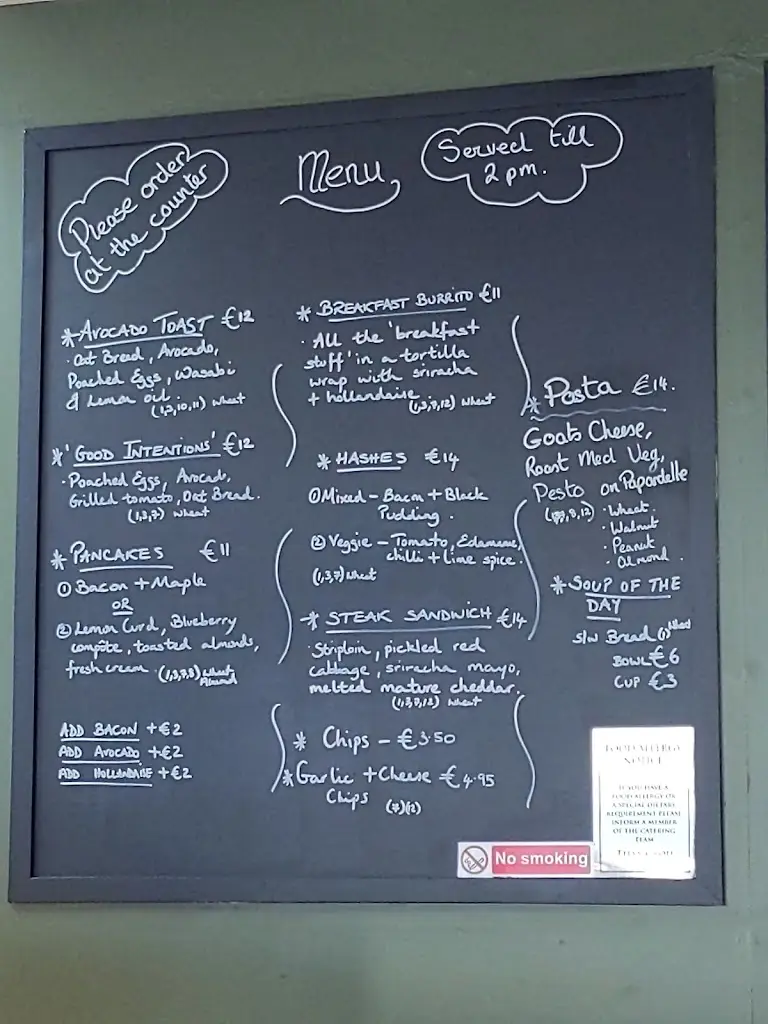 Please order
at the counter
Menu
Served till
2 pm.
* AVOCADO TOAST €12
· Oat Bread, Avocado,
Poached Eggs, Wasabi
& Lemon oil
(1,3,10,11) Wheat
* 'GOOD INTENTIONS' €12
· Poached Eggs, Avocado,
Grilled tomato, Oat Bread.
(1,3,7) Wheat
* PANCAKES €11
① Bacon + Maple
OR
② Lemon Curd, Blueberry
compôte, toasted almonds,
fresh cream. (1,3,7,8) Wheat
Almond
ADD BACON +€2
ADD AVOCADO +€2
ADD HOLLANDAISE +€2
* BREAKFAST BURRITO €11
· All the 'breakfast
stuff' in a tortilla
wrap with sriracha
+ hollandaise (1,3,7,12) Wheat
* HASHES €14
① Mixed - Bacon + Black
Pudding.
② Veggie - Tomato, Edamame,
chilli + lime spice.
(1,3,7) Wheat
* STEAK SANDWICH €14
· Striploin, pickled red
cabbage, sriracha mayo,
melted mature cheddar.
(1,3,7,12) Wheat
* Chips - €3.50
* Garlic + Cheese €4.95
Chips (7)(12)
* Pasta €14.
Goats Cheese,
Roast Med Veg,
Pesto on Papardelle
· Wheat.
· Walnut
· Peanut
· Almond.
* SOUP OF THE
DAY
S/W Bread (1) Wheat
BOWL €6
CUP €3
FOOD ALLERGY
NOTICE
IF YOU HAVE A
FOOD ALLERGY OR
A SPECIAL DIETARY
REQUIREMENT PLEASE
INFORM A MEMBER
OF THE CATERING
TEAM
THANK YOU
No smoking